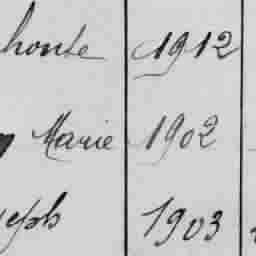 phonse 1912
Marie 1902
seph 1903